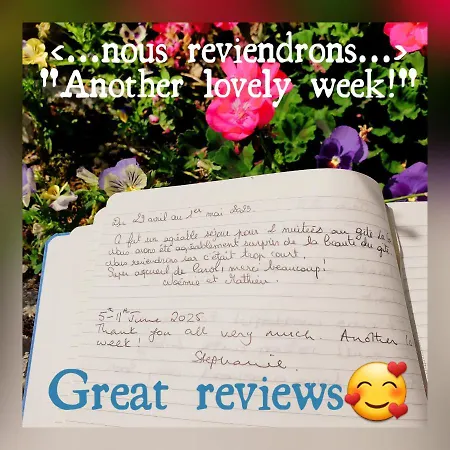 <...nous reviendrons...>
"Another lovely week!"
Du 29 avril au 1er mai 2025.
A fait un agréable séjour pour 2 nuitées au gîte
Nous avons été agréablement surpris de la beauté du gîte
Nous reviendrons car c'était trop court.
Super accueil de Carol! merci beaucoup!
et Mathieu.
5th-11th June 2025
Thank you all very much. Another
week!
Stephanie.
Great reviews